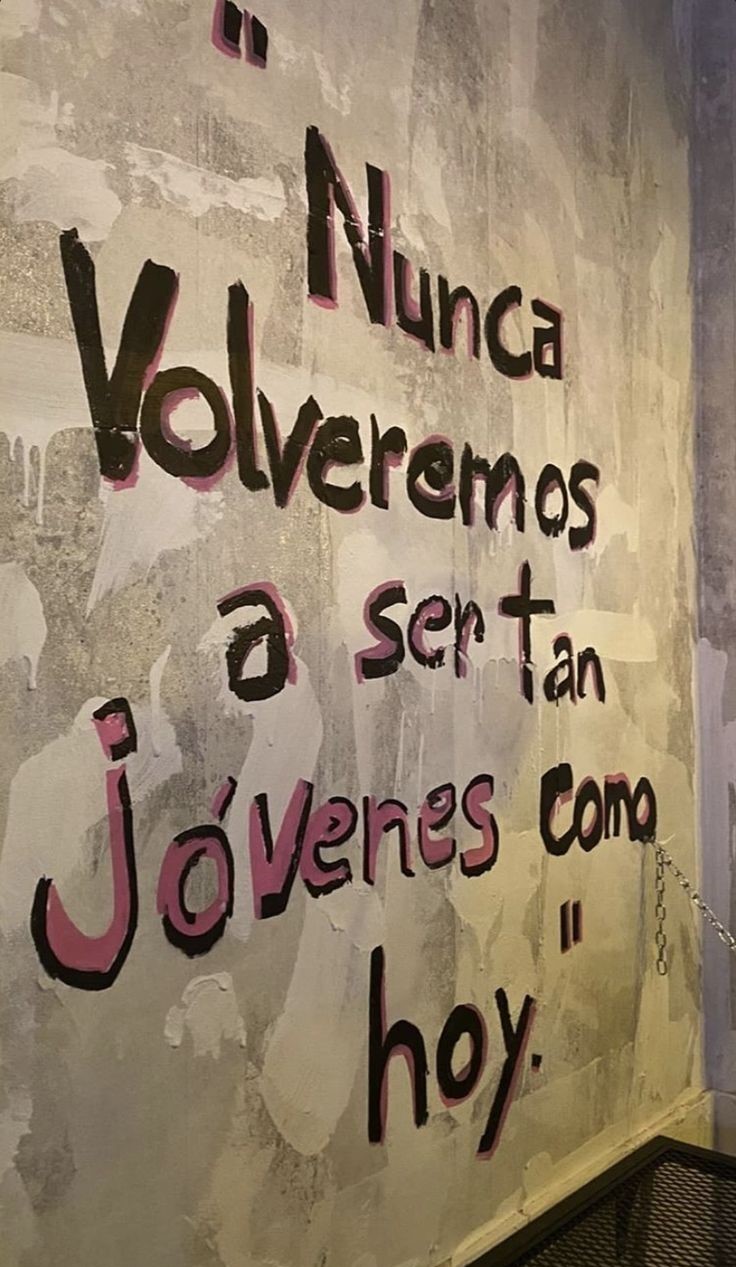 "Nunca
Volveremos
a ser tan
jóvenes como
hoy."